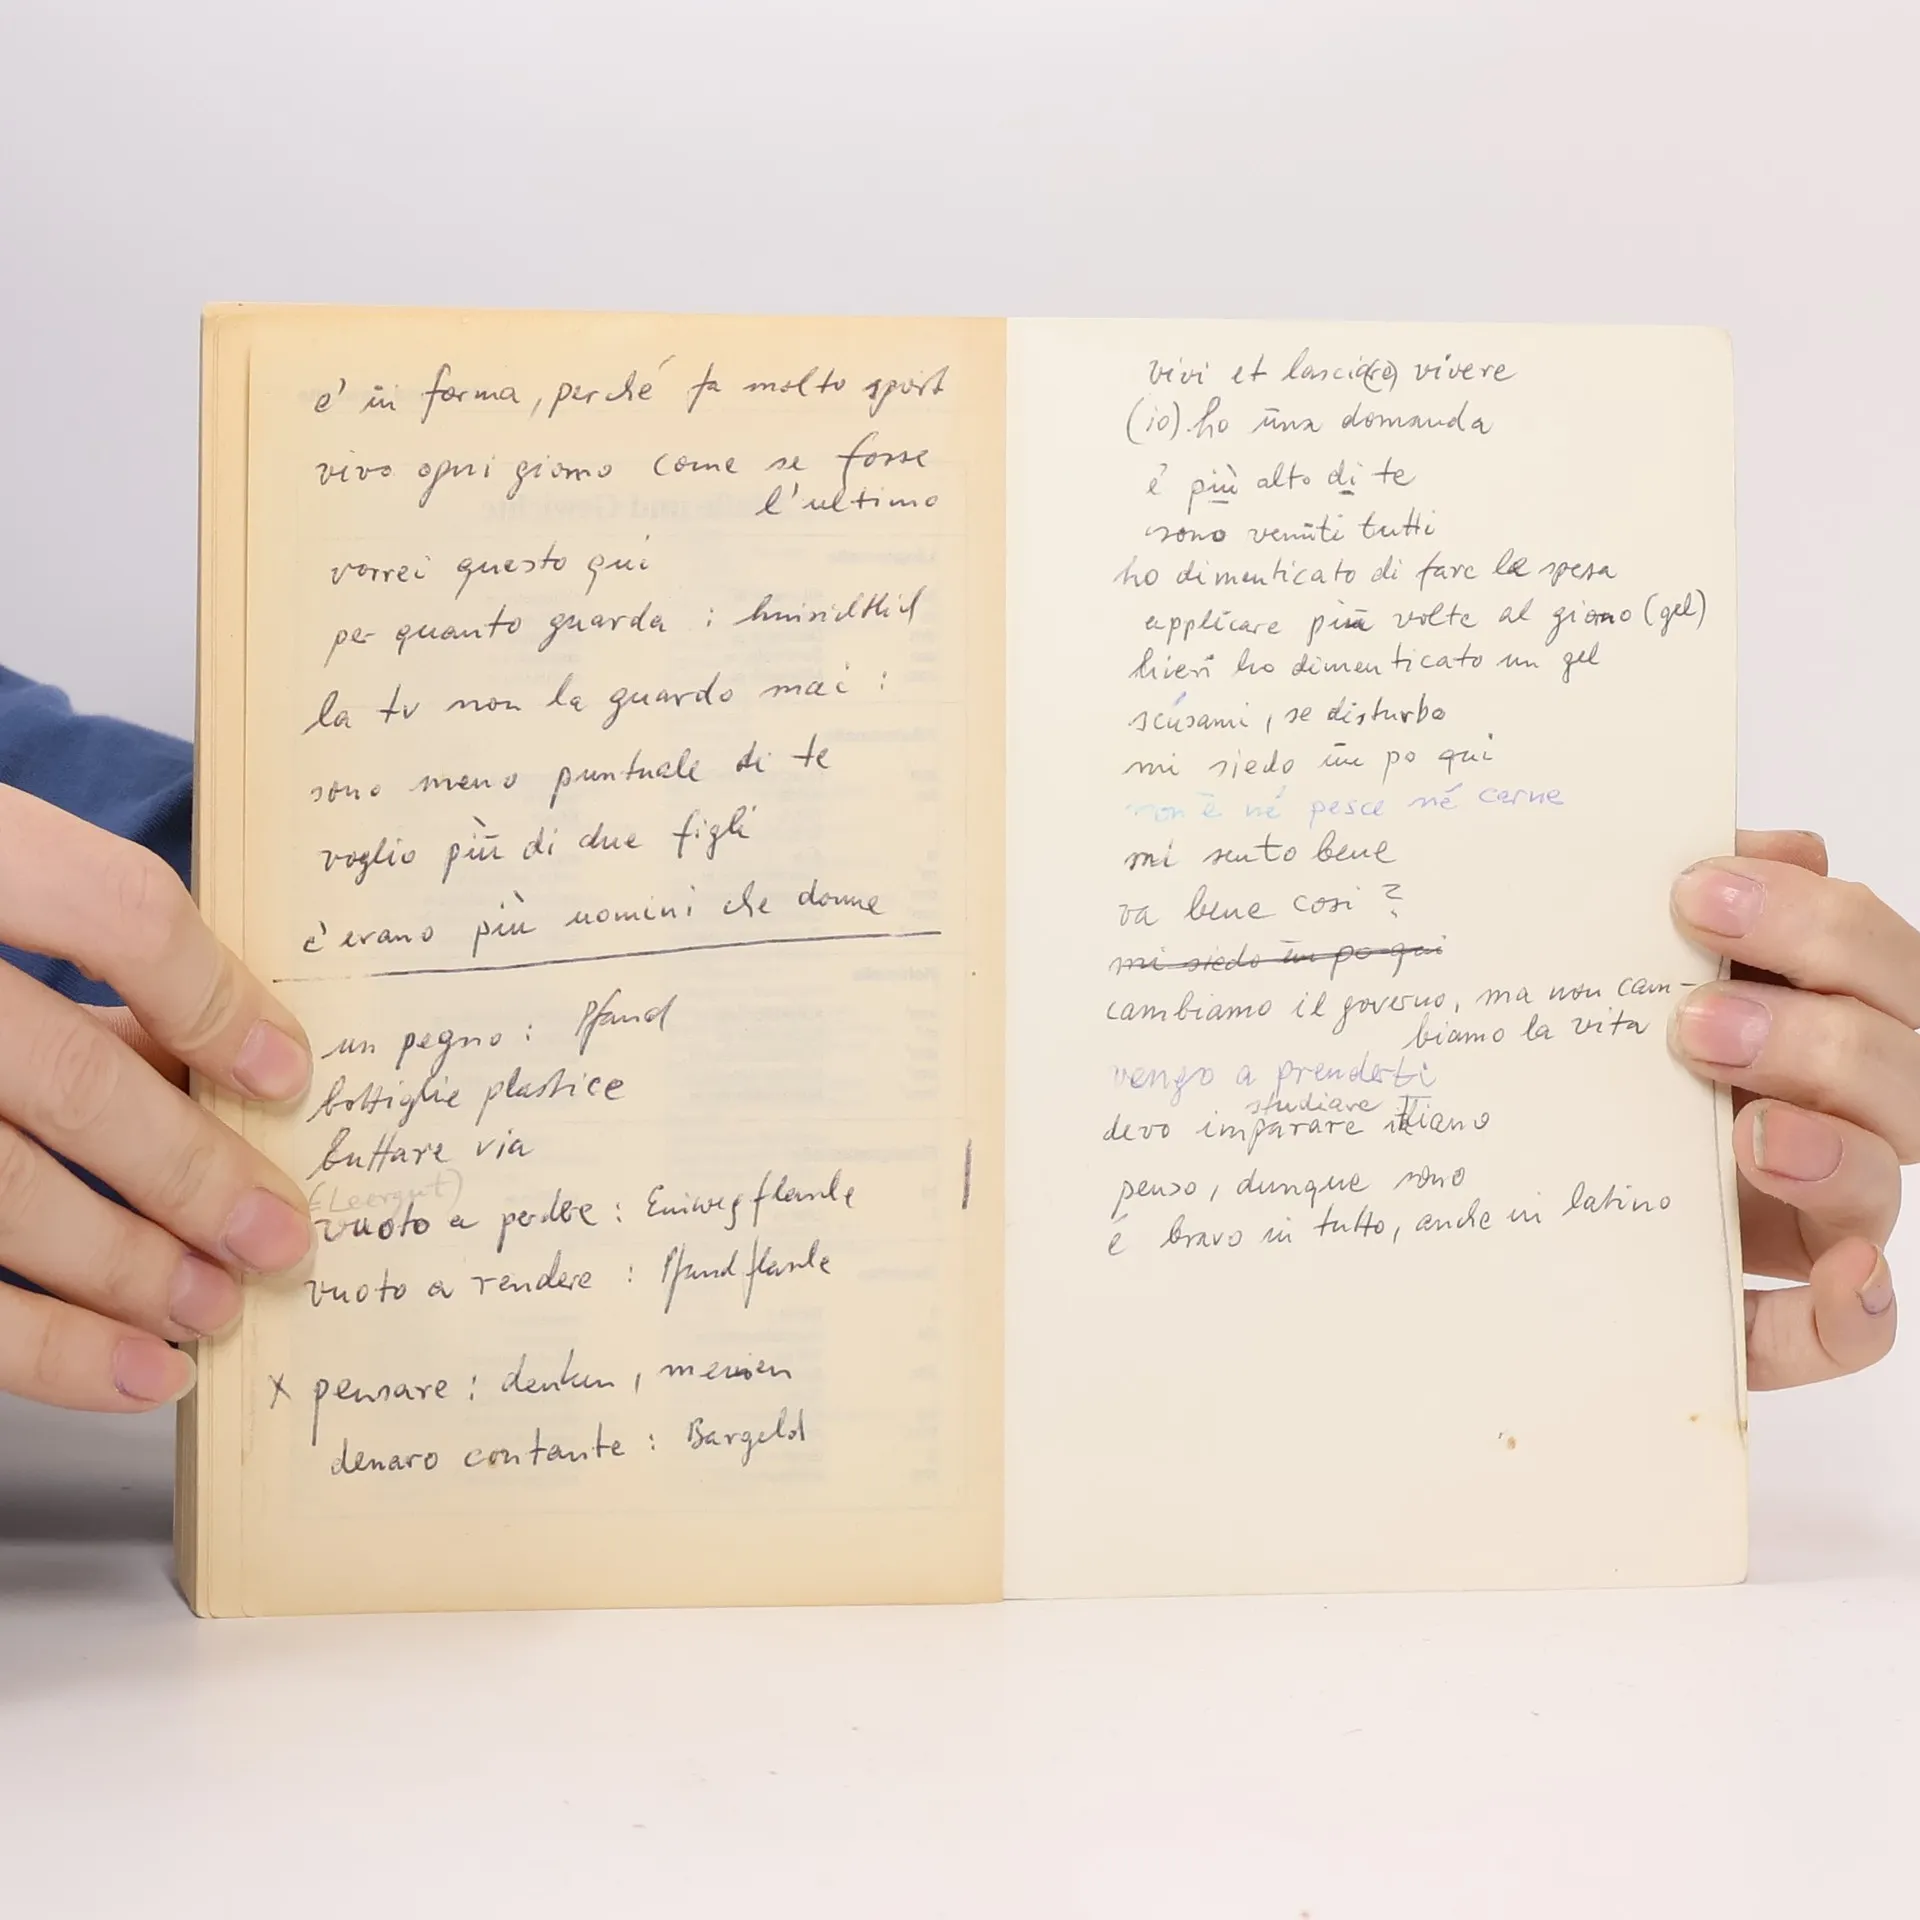 e' in forma, perché fa molto sport
vivo ogni giorno come se fosse
l'ultimo
vorrei questo qui
per quanto guarda : hinsichtlich
la tv non la guardo mai :
sono meno puntuale di te
voglio più di due figli
c'erano più uomini che donne
un pegno : Pfand
bottiglie plastice
buttare via
(Leergut)
vuoto a perdere : Einwegflasche
vuoto a rendere : Pfandflasche
x pensare : denken, meinen
denaro contante : Bargeld
vivi et lascia(re) vivere
(io) ho una domanda
é più alto di te
sono venuti tutti
ho dimenticato di fare la spesa
applicare più volte al giorno (gel)
hieri ho dimenticato un gel
scusami, se disturbo
mi siedo un po qui
non è né pesce né carne
mi sento bene
va bene cosi ?
mi siedo un po qui
cambiamo il governo, ma non cam-
biamo la vita
vengo a prenderti
studiare
devo imparare
penso, dunque sono
é bravo in tutto, anche in latino